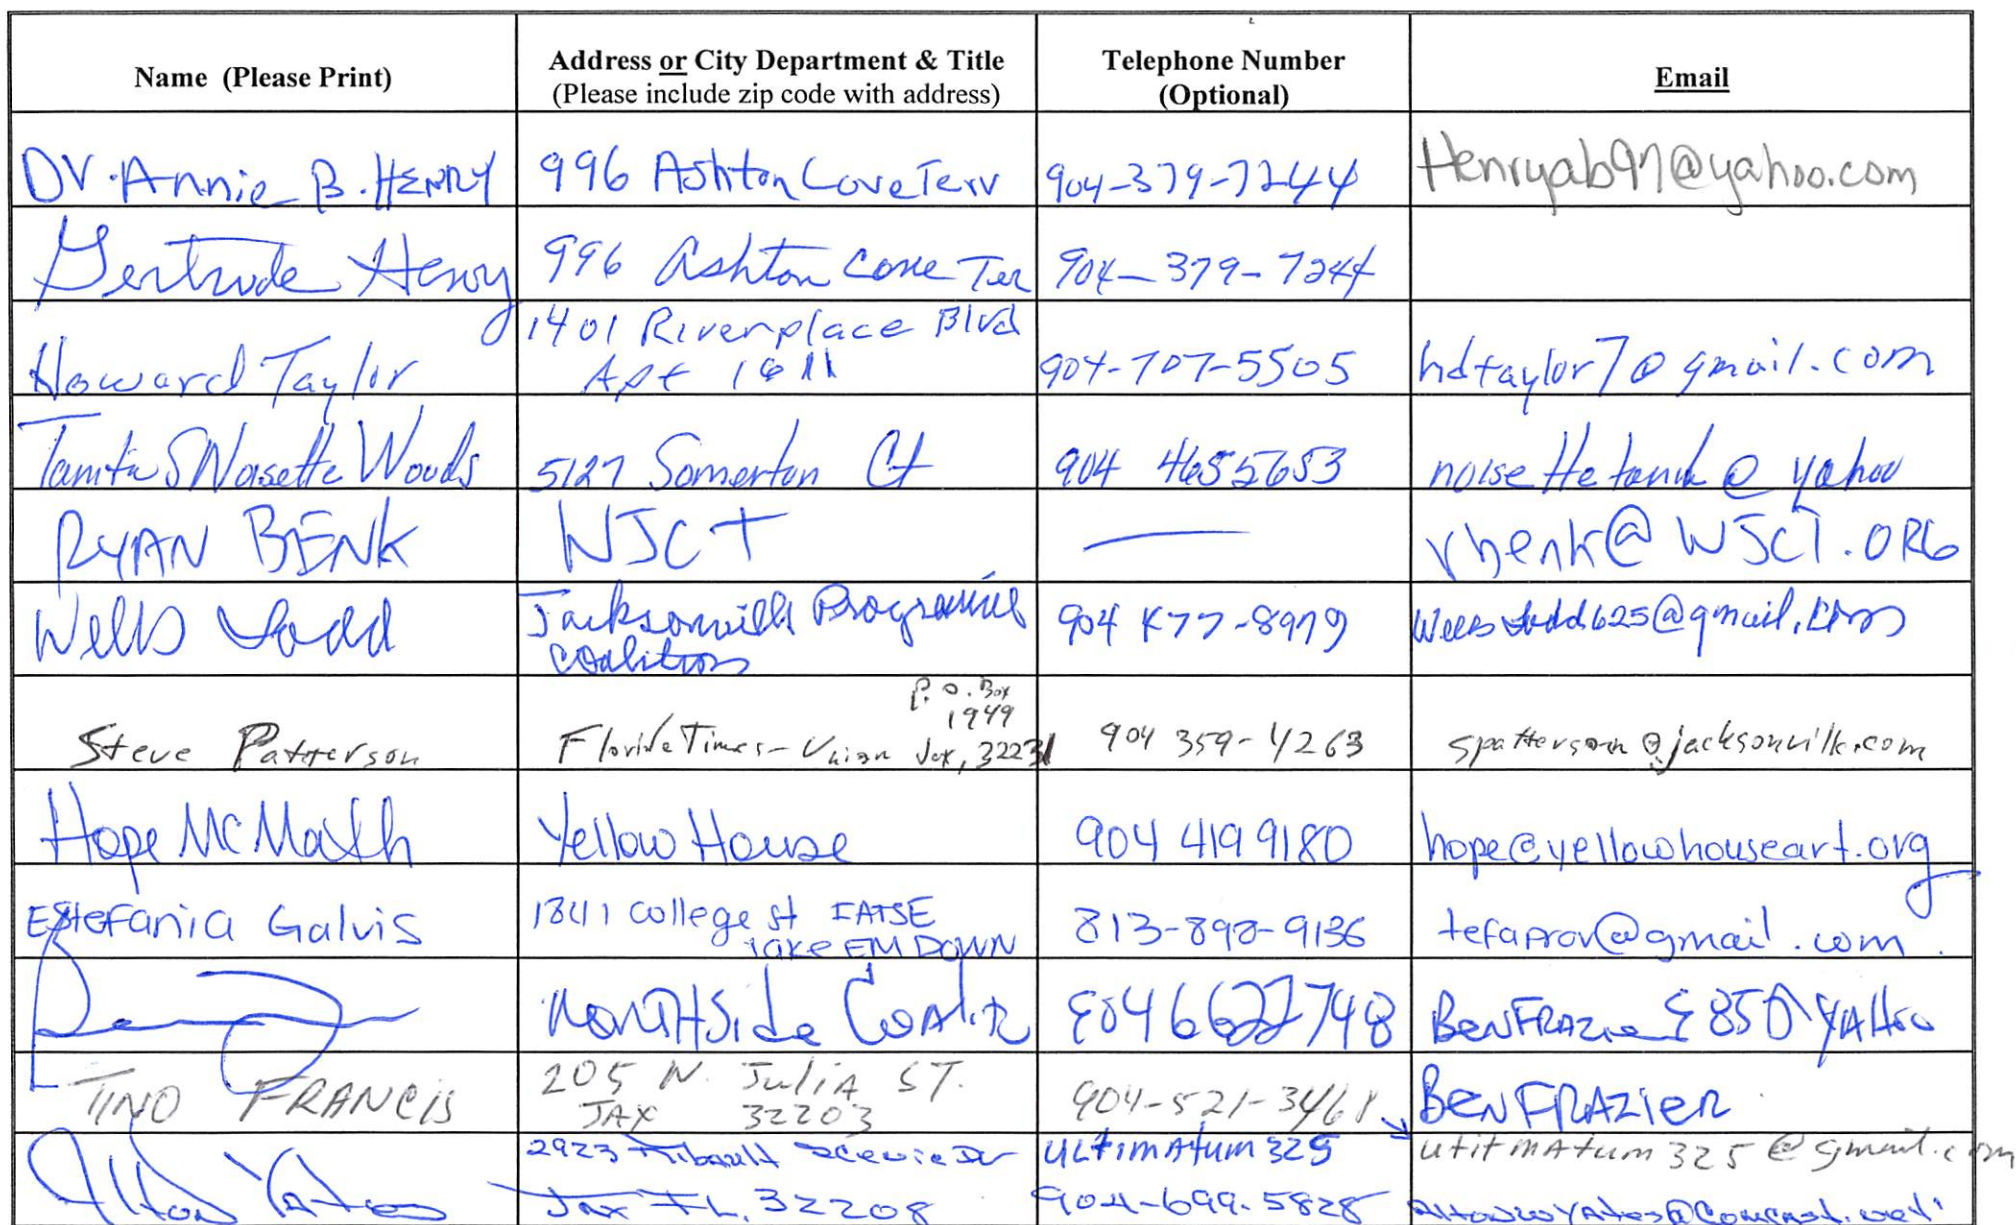 Name (Please Print)
Address or City Department & Title
(Please include zip code with address)
Telephone Number
(Optional)
Email
Dr. Annie B. HENRY
996 Ashton Cove Terr
904-379-7244
Henryab97@yahoo.com
Gertrude Henry
996 Ashton Cove Ter
904-379-7244
Howard Taylor
1401 Riverplace Blvd
Apt 1611
904-707-5505
hdtaylor7@gmail.com
Woods
5127 Somerton Ct
904 4655653
@ yahoo
RYAN BENK
WJCT
rbenk@WJCT.ORG
Wells Todd
Jacksonville Progressive
Coalition
904 477-8979
Wellstodd625@gmail.com
Steve Patterson
P.O. Box
1949
Florida Times-Union Jax, 32231
904 359-4263
spatterson@jacksonville.com
Hope McMath
Yellow House
904 419 9180
hope@yellowhouseart.org
Estefania Galvis
1841 college st IATSE
Take EM DOWN
813-898-9136
@gmail.com
NORTHSide
9046622748
BENFRAZIER 850 YAHOO
TINO FRANCIS
205 N. Julia ST.
JAX 32203
904-521-3468
BEN FRAZIER
Alton Yates
2923 Ribault Scenic Dr
Jax FL, 32208
ULTIMATUM 325
904-699-5828
utitmatum325@gmail.com